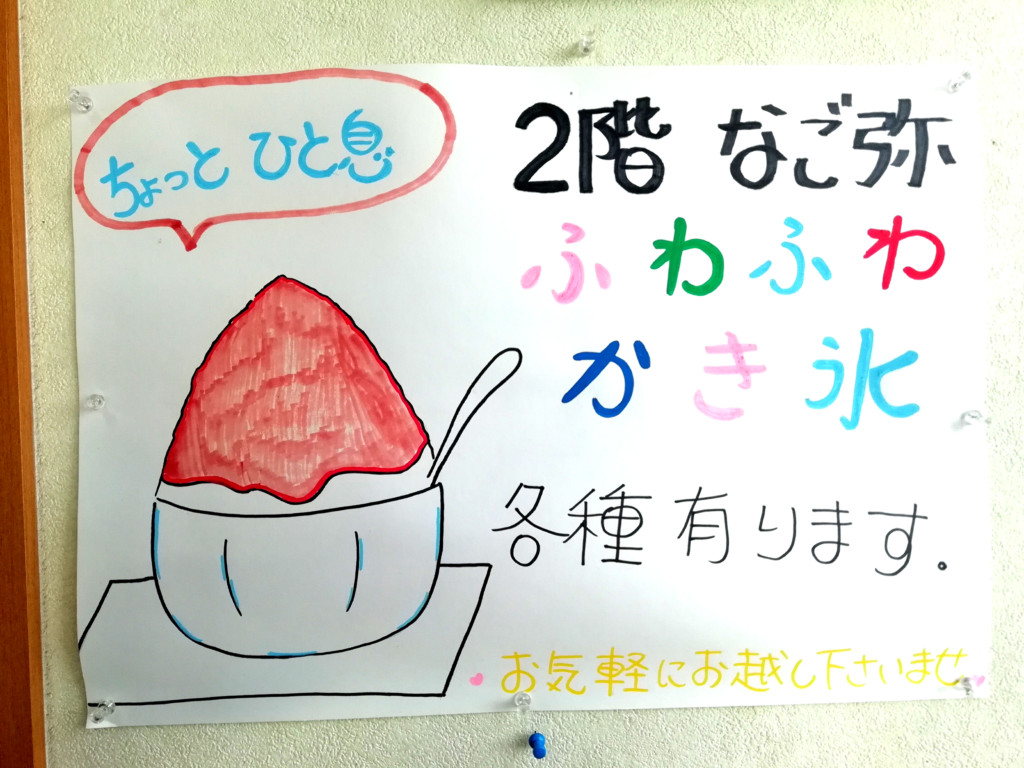 ちょっと ひと息
2階 なご弥
ふわふわ
かき氷
各種 有ります。
お気軽にお越し下さいませ